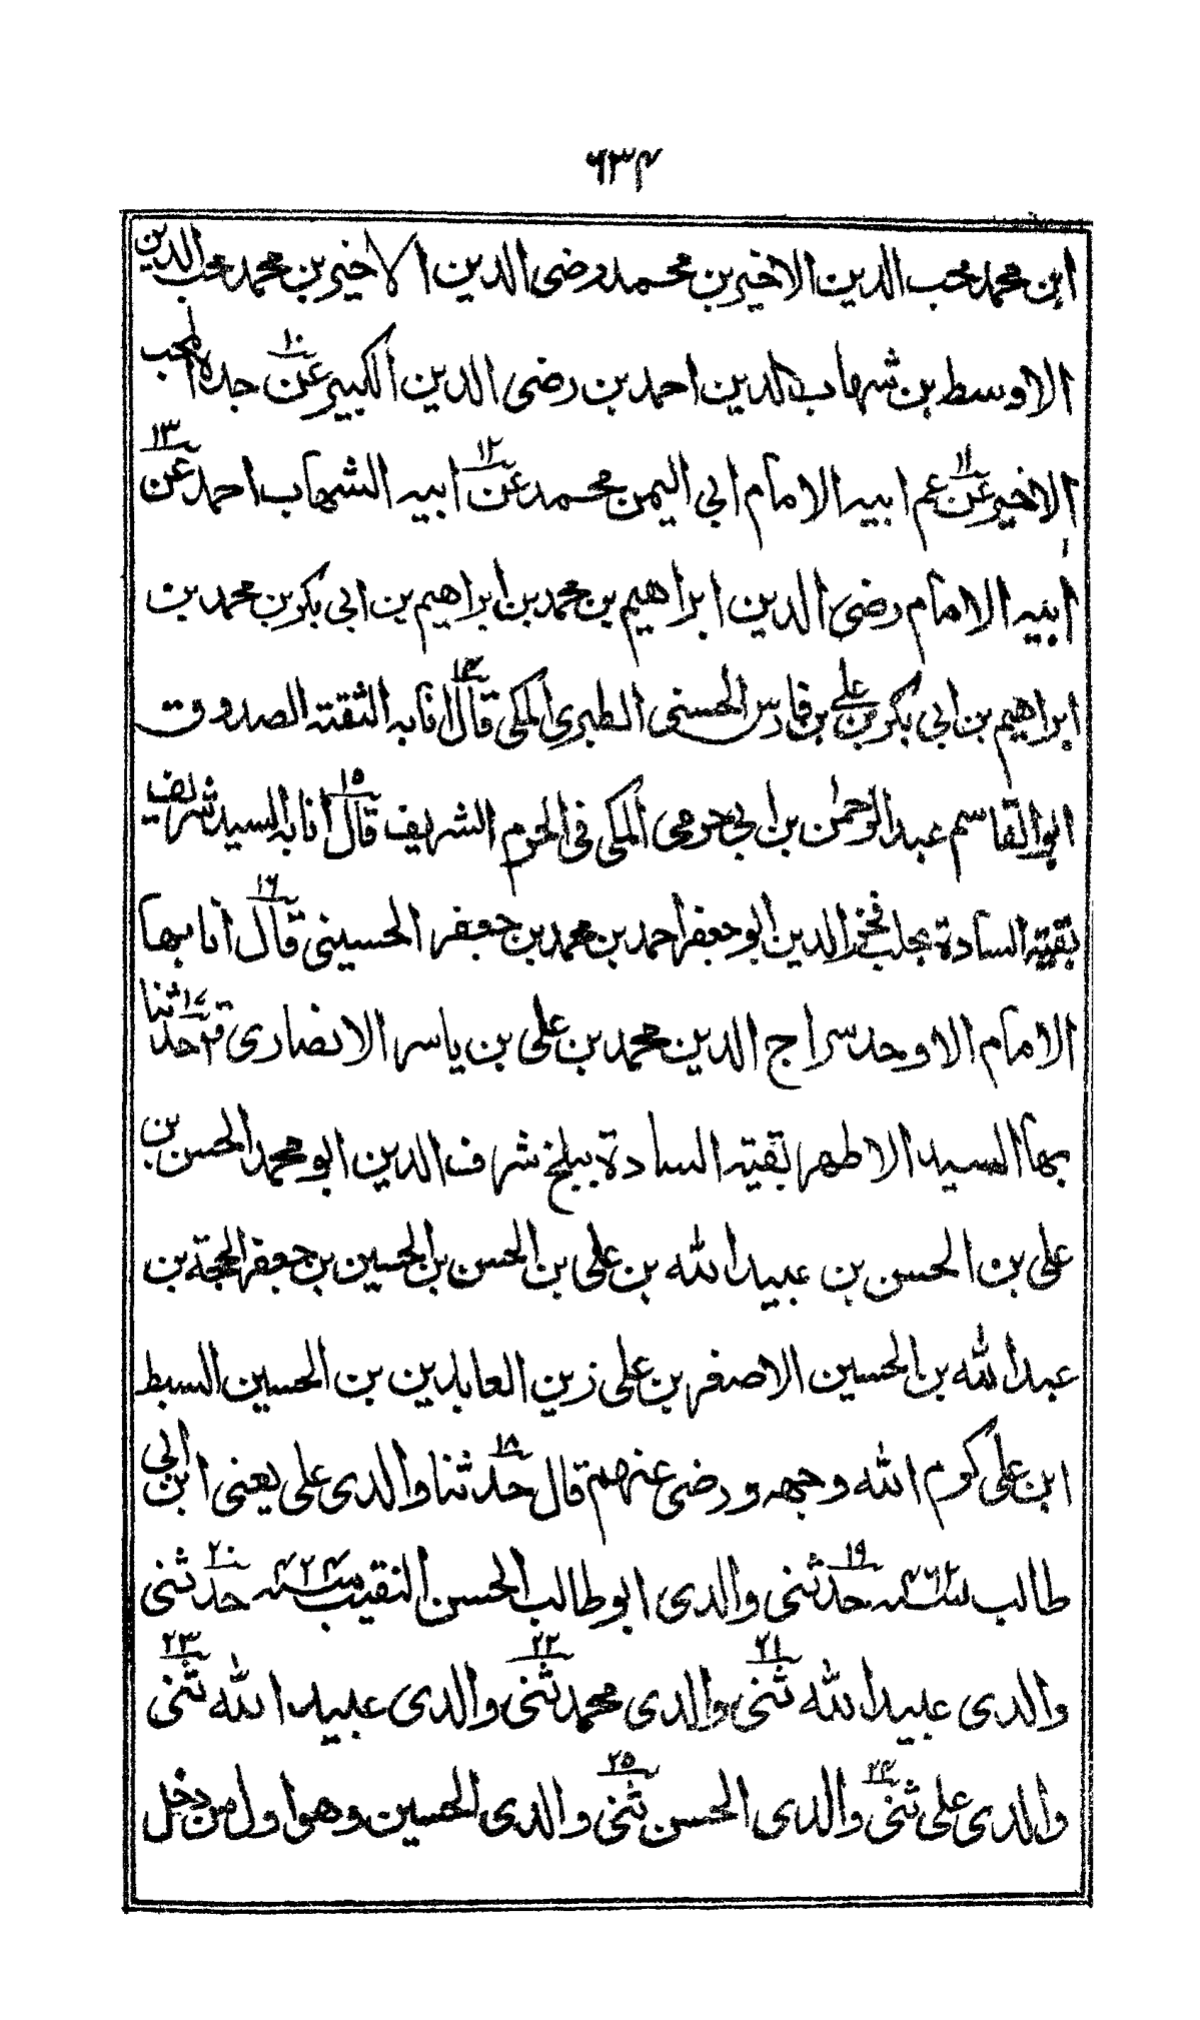 ٦٣٤
ابن محمد محب الدين الاخير بن محمد رضى الدين الاخير بن محمد محب الدين
الاوسط بن شهاب الدين احمد بن رضى الدين الكبير عن ١٠ جده المحب
الاخير عن ١١ عم ابيه الامام ابي اليمن محمد عن ١٢ ابيه الشهاب احمد عن ١٣
ابيه الامام رضى الدين ابراهيم بن محمد بن ابراهيم بن ابى بكر بن محمد بن
ابراهيم بن ابى بكر بن على بن فارس الحسنى الطبرى المكى قال ١٤ انا به الثقته الصدوق
ابو القاسم عبد الرحمٰن بن ابى حرمى المكى فى الحرم الشريف قال ١٥ انا به السيد شريف
بقيته السادة بحلب فخر الدين ابو جعفر احمد بن محمد بن جعفر الحسينى قال ١٦ انا بها
الامام الاوحد سراج الدين محمد بن على بن ياسر الانصارى قر حدثنا ١٧
بها السيد الاطهر بقيته السادة ببلخ شرف الدين ابو محمد الحسن بن
على بن الحسن بن عبيد الله بن على بن الحسن بن الحسين بن جعفر الحجة بن
عبد الله بن الحسين الاصغر بن على زين العابدين بن الحسين السبط
ابن على كرم الله وجهه ورضى عنهم قال حدثنا ١٨ والدى على يعنى ابن ابى
طالب سنه ٤٦٢ حدثنى ١٩ والدى ابو طالب الحسن النقيب سنه ٤٢٤ حدثنى ٢٠
والدى عبيد الله ثنى ٢١ والدى محمد ثنى ٢٢ والدى عبيد الله ثنى ٢٣
والدى على ثنى ٢٤ والدى الحسن ثنى ٢٥ والدى الحسين وهو اول من دخل